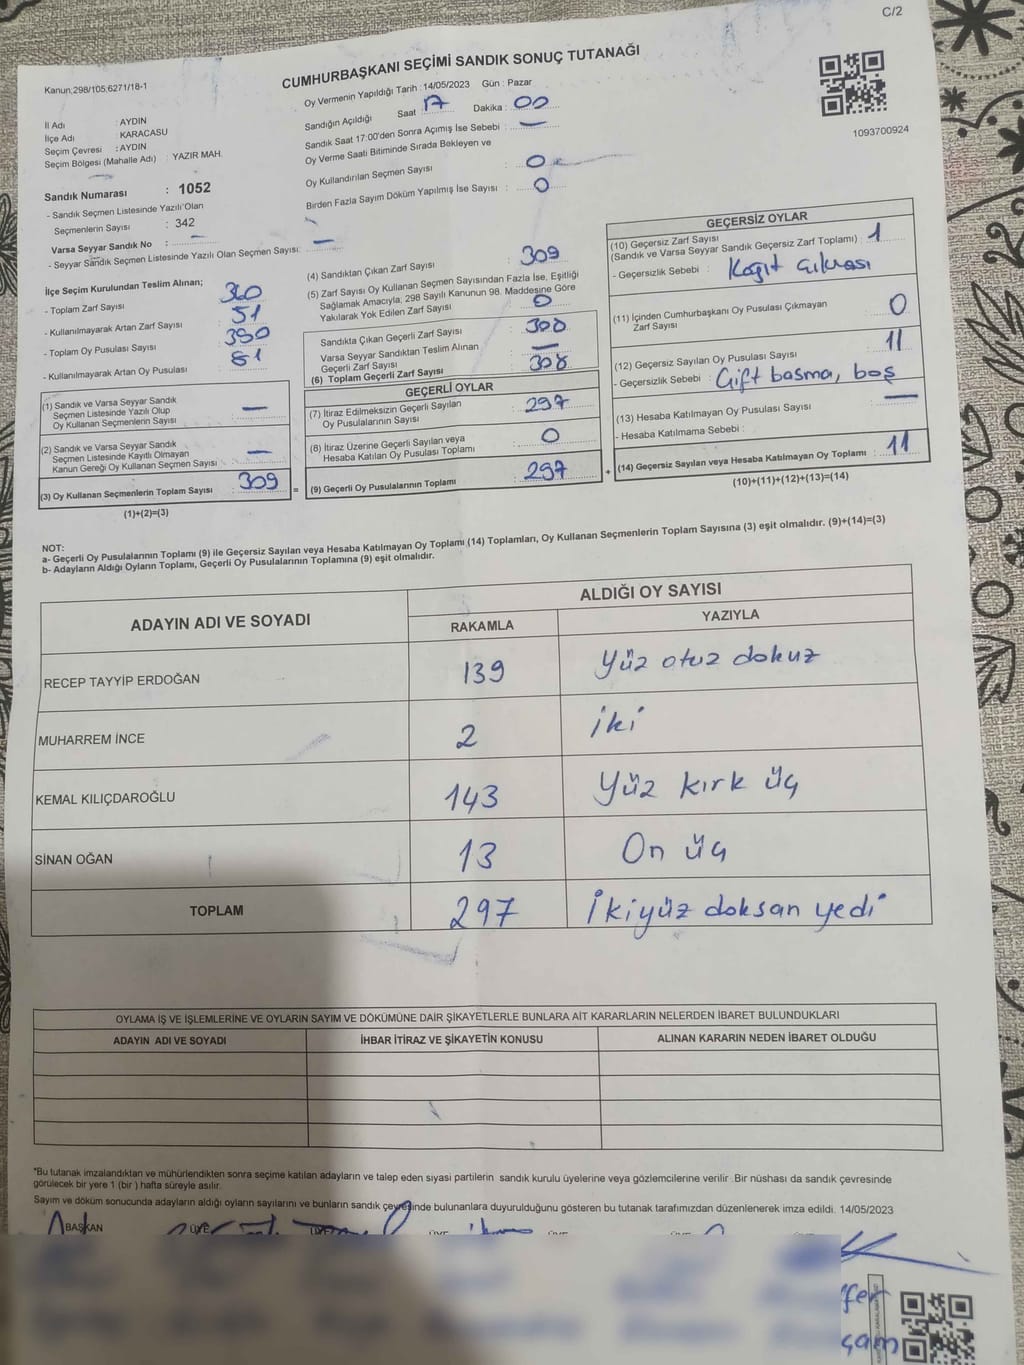 C/2
Kanun,298/105,6271/18-1
CUMHURBAŞKANI SEÇİMİ SANDIK SONUÇ TUTANAĞI
Oy Vermenin Yapıldığı Tarih : 14/05/2023 Gün : Pazar
İl Adı : AYDIN
İlçe Adı : KARACASU
Seçim Çevresi : AYDIN
Seçim Bölgesi (Mahalle Adı) : YAZIR MAH.
Sandığın Açıldığı Saat 17 Dakika : 00
Sandık Saat 17:00'den Sonra Açımış İse Sebebi : —
Oy Verme Saati Bitiminde Sırada Bekleyen ve
Oy Kullandırılan Seçmen Sayısı : 0
Birden Fazla Sayım Döküm Yapılmış İse Sayısı : 0
1093700924
Sandık Numarası : 1052
- Sandık Seçmen Listesinde Yazılı Olan
Seçmenlerin Sayısı : 342
Varsa Seyyar Sandık No : —
- Seyyar Sandık Seçmen Listesinde Yazılı Olan Seçmen Sayısı: —
İlçe Seçim Kurulundan Teslim Alınan;
- Toplam Zarf Sayısı : 360
- Kullanılmayarak Artan Zarf Sayısı : 51
- Toplam Oy Pusulası Sayısı : 390
- Kullanılmayarak Artan Oy Pusulası : 81
(1) Sandık ve Varsa Seyyar Sandık
Seçmen Listesinde Yazılı Olup
Oy Kullanan Seçmenlerin Sayısı : —
(2) Sandık ve Varsa Seyyar Sandık
Seçmen Listesinde Kayıtlı Olmayan
Kanun Gereği Oy Kullanan Seçmen Sayısı : —
(3) Oy Kullanan Seçmenlerin Toplam Sayısı : 309 =
(1)+(2)=(3)
(4) Sandıktan Çıkan Zarf Sayısı : 309
(5) Zarf Sayısı Oy Kullanan Seçmen Sayısından Fazla İse, Eşitliği
Sağlamak Amacıyla, 298 Sayılı Kanunun 98. Maddesine Göre
Yakılarak Yok Edilen Zarf Sayısı : 0
Sandıkta Çıkan Geçerli Zarf Sayısı : 308
Varsa Seyyar Sandıktan Teslim Alınan
Geçerli Zarf Sayısı : —
(6) Toplam Geçerli Zarf Sayısı : 308
GEÇERLİ OYLAR
(7) İtiraz Edilmeksizin Geçerli Sayılan
Oy Pusulalarının Sayısı : 297
(8) İtiraz Üzerine Geçerli Sayılan veya
Hesaba Katılan Oy Pusulası Toplamı : 0
(9) Geçerli Oy Pusulalarının Toplamı : 297 +
GEÇERSİZ OYLAR
(10) Geçersiz Zarf Sayısı
(Sandık ve Varsa Seyyar Sandık Geçersiz Zarf Toplamı) : 1
- Geçersizlik Sebebi : Kağıt çıkması
(11) İçinden Cumhurbaşkanı Oy Pusulası Çıkmayan
Zarf Sayısı : 0
(12) Geçersiz Sayılan Oy Pusulası Sayısı : 11
- Geçersizlik Sebebi : Çift basma, boş
(13) Hesaba Katılmayan Oy Pusulası Sayısı : —
- Hesaba Katılmama Sebebi :
(14) Geçersiz Sayılan veya Hesaba Katılmayan Oy Toplamı : 11
(10)+(11)+(12)+(13)=(14)
NOT:
a- Geçerli Oy Pusulalarının Toplamı (9) ile Geçersiz Sayılan veya Hesaba Katılmayan Oy Toplamı (14) Toplamları, Oy Kullanan Seçmenlerin Toplam Sayısına (3) eşit olmalıdır. (9)+(14)=(3)
b- Adayların Aldığı Oyların Toplamı, Geçerli Oy Pusulalarının Toplamına (9) eşit olmalıdır.
ADAYIN ADI VE SOYADI
ALDIĞI OY SAYISI
RAKAMLA YAZIYLA
RECEP TAYYİP ERDOĞAN 139 Yüz otuz dokuz
MUHARREM İNCE 2 İki
KEMAL KILIÇDAROĞLU 143 Yüz kırk üç
SİNAN OĞAN 13 On üç
TOPLAM 297 İkiyüz doksan yedi
OYLAMA İŞ VE İŞLEMLERİNE VE OYLARIN SAYIM VE DÖKÜMÜNE DAİR ŞİKAYETLERLE BUNLARA AİT KARARLARIN NELERDEN İBARET BULUNDUKLARI
ADAYIN ADI VE SOYADI İHBAR İTİRAZ VE ŞİKAYETİN KONUSU ALINAN KARARIN NEDEN İBARET OLDUĞU
*Bu tutanak imzalandıktan ve mühürlendikten sonra seçime katılan adayların ve talep eden siyasi partilerin sandık kurulu üyelerine veya gözlemcilerine verilir .Bir nüshası da sandık çevresinde
görülecek bir yere 1 (bir ) hafta süreyle asılır.
Sayım ve döküm sonucunda adayların aldığı oyların sayılarını ve bunların sandık çevresinde bulunanlara duyurulduğunu gösteren bu tutanak tarafımızdan düzenlenerek imza edildi. 14/05/2023
BAŞKAN ÜYE ÜYE ÜYE ÜYE ÜYE